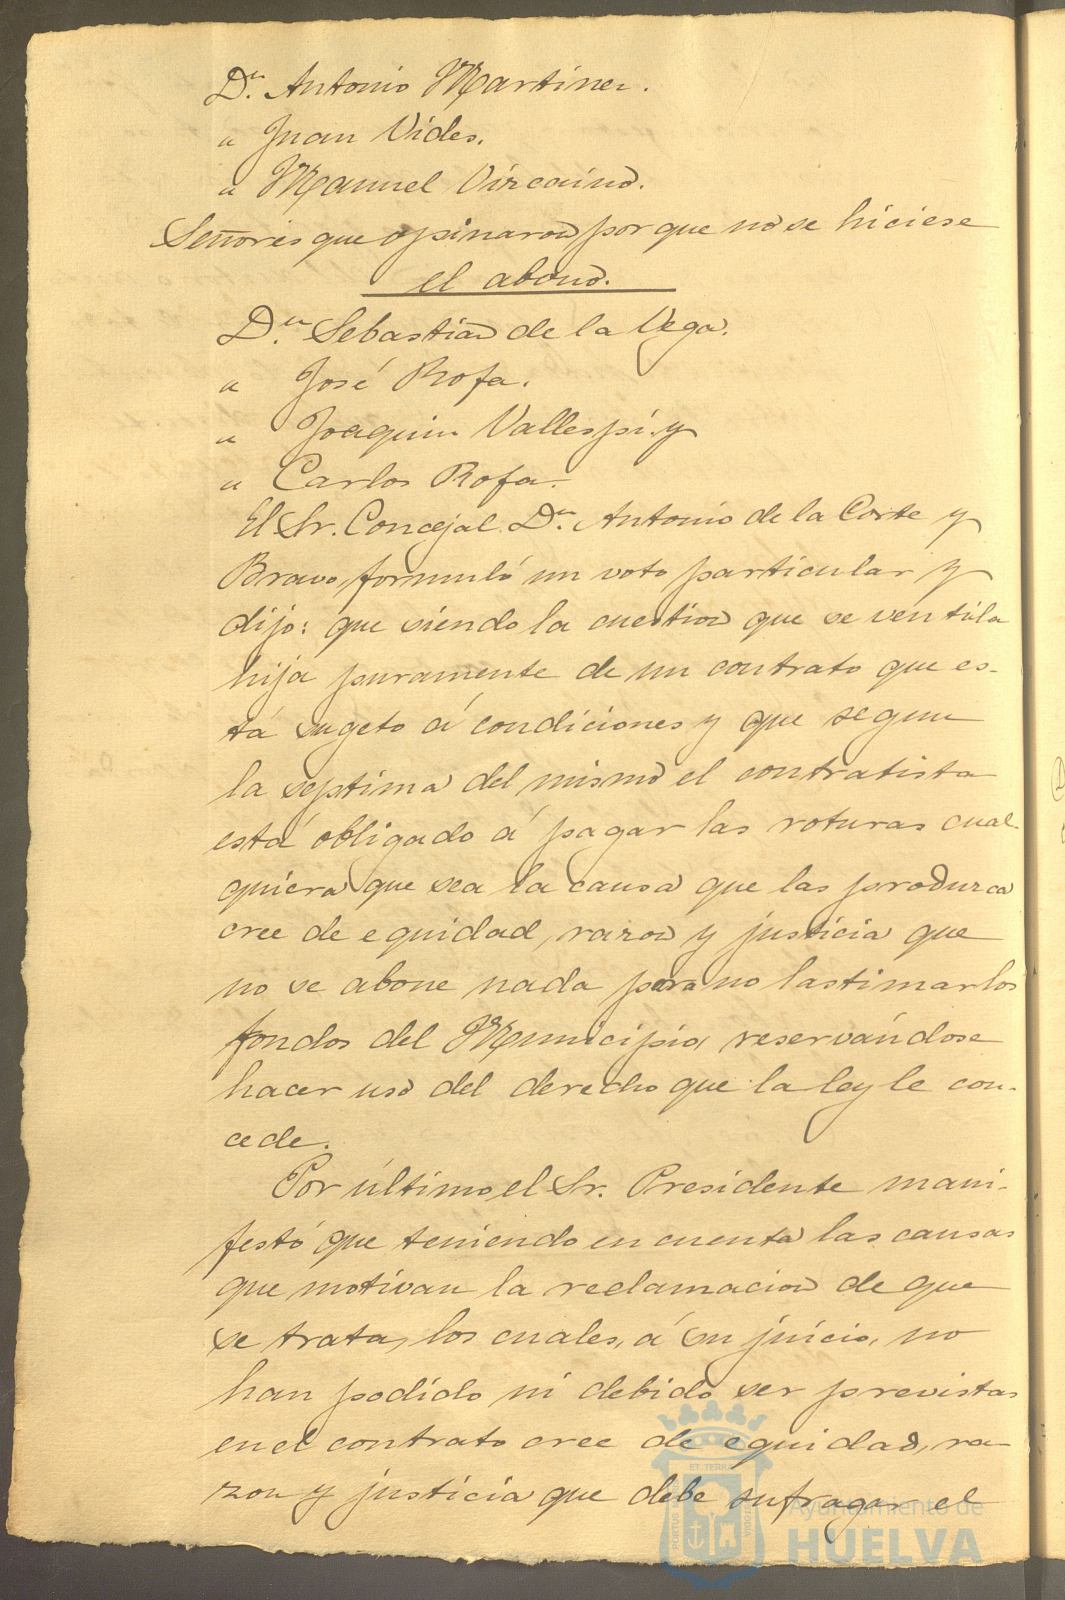 Dn. Antonio Martinez.
" Juan Vides.
" Manuel Vizcaino.
Señores que opinaron porque no se hiciese
el abono.
Dn. Sebastian de la Vega.
" José Rofa.
" Joaquin Vallespí y
" Carlos Rofa.
El Sr. Concejal Dn. Antonio de la Corte y
Bravo, formuló un voto particular y
dijo: que siendo la cuestion que se ventila
hija puramente de un contrato que es-
tá sugeto á condiciones y que segun
la septima del mismo el contratista
está obligado á pagar las roturas cual-
quiera que sea la causa que las produzca
cree de equidad, razon y justicia que
no se abone nada para no lastimar los
fondos del Municipio, reservándose
hacer uso del derecho que la ley le con-
cede.
Por último, el Sr. Presidente mani-
festó que teniendo en cuenta las causas
que motivan la reclamacion de que
se trata, los cuales, á su juicio, no
han podido ni debido ser previstas
en el contrato cree de equidad, ra-
zon y justicia que debe sufragar el
Ayuntamiento de
HUELVA